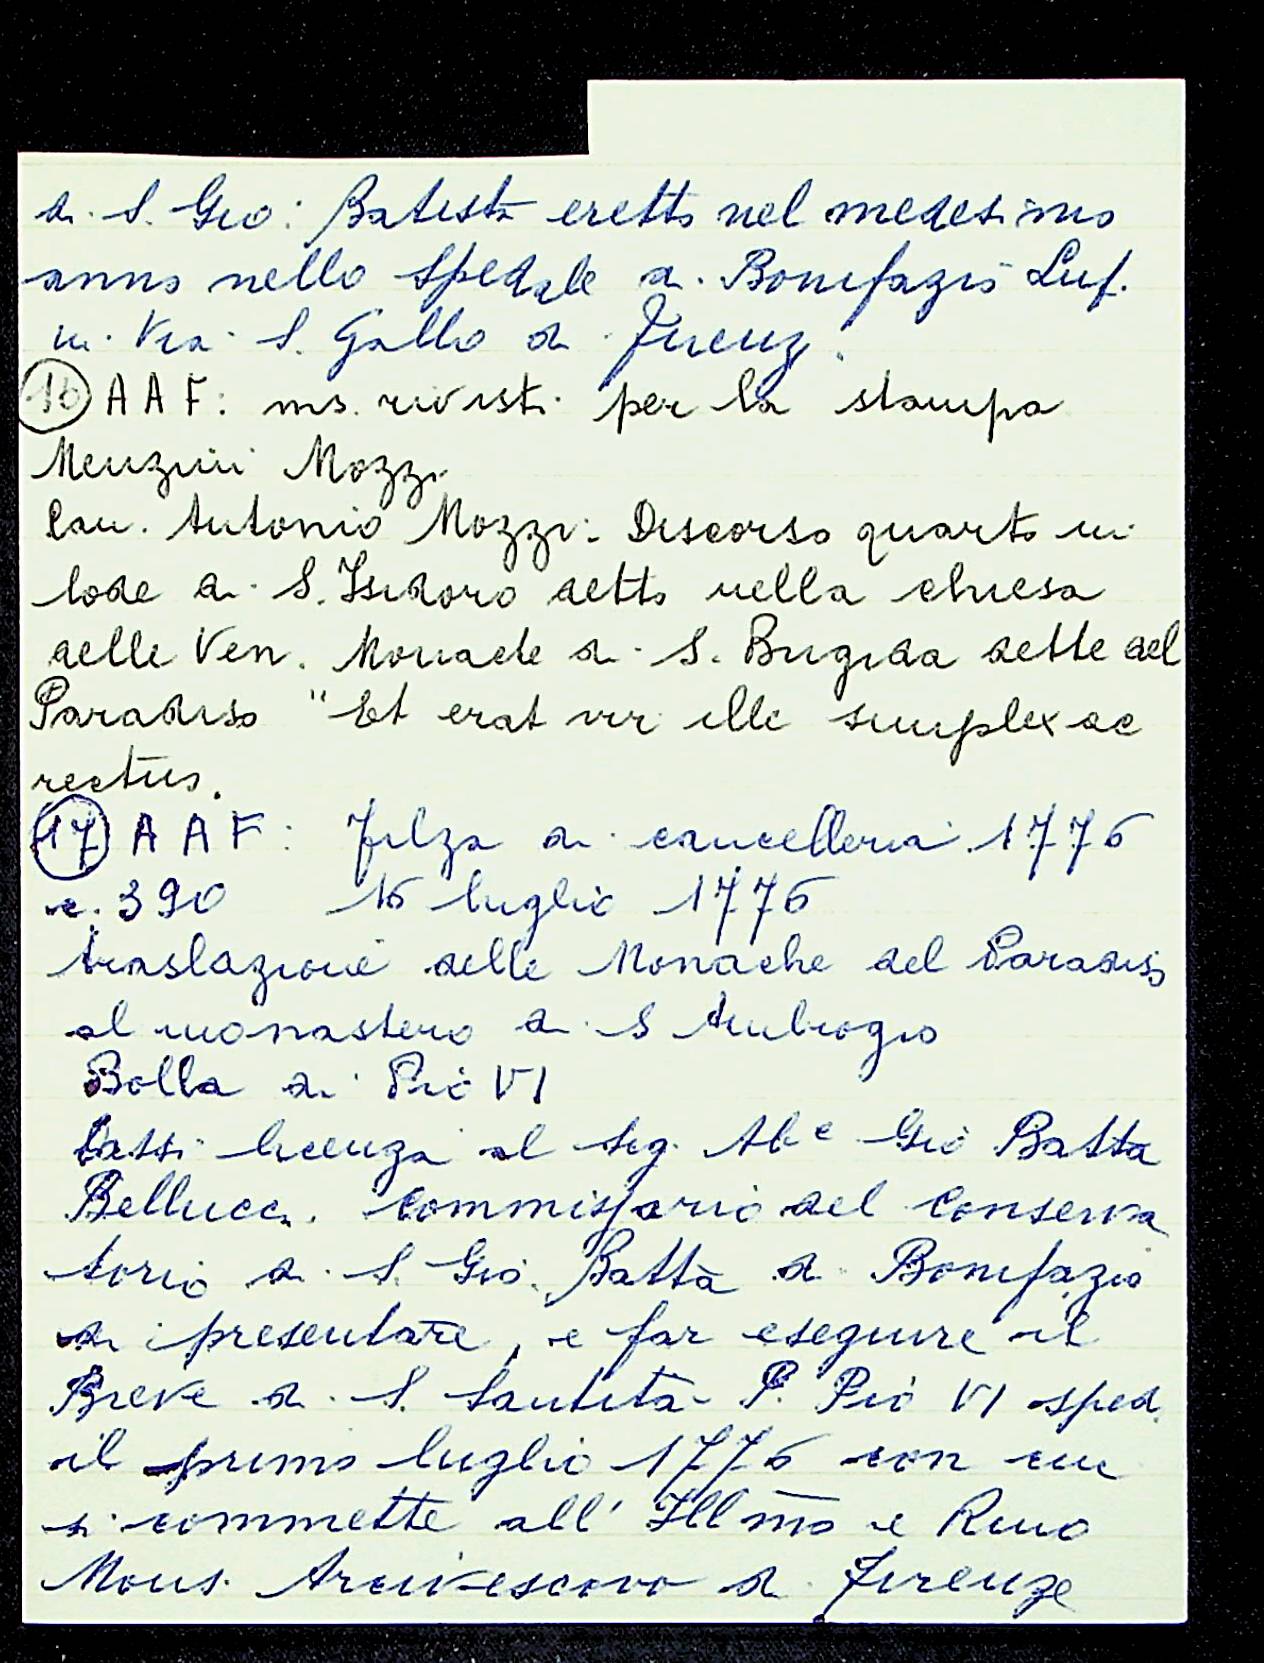 di S. Gio: Batista eretto nel medesimo
anno nello Spedale di Bonifazio Lup.
in Via S. Gallo di Firenz.
16 A A F: ms. rivisti per la stampa
Menzini Mozzi
Can. Antonio Mozzi: Discorso quarto in
lode di S. Isidoro detto nella chiesa
delle Ven. Monache di S. Brigida dette del
Paradiso "Et erat vir ille simplex ac
rectus.
17 A A F: Filza di cancelleria 1776
c. 390 16 luglio 1776
traslazione delle Monache del Paradiso
al monastero di S Ambrogio
Bolla di Pio VI
Dassi licenza al Sig. Abe Gio Batta
Bellucci. Commissario del Conserva
torio di S. Gio. Batta di Bonifazio
di presentare, e far eseguire il
Breve di S. Santità P. Pio VI sped.
il primo luglio 1776 con cui
si commette all' Illmo e Rmo
Mons. Arcivescovo di Firenze